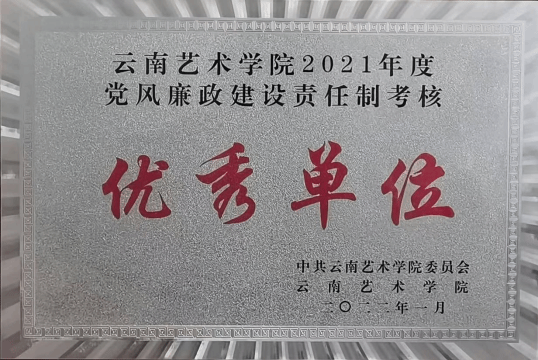 云南艺术学院2021年度
党风廉政建设责任制考核
优秀单位
中共云南艺术学院委员会
云南艺术学院
二〇二二年一月